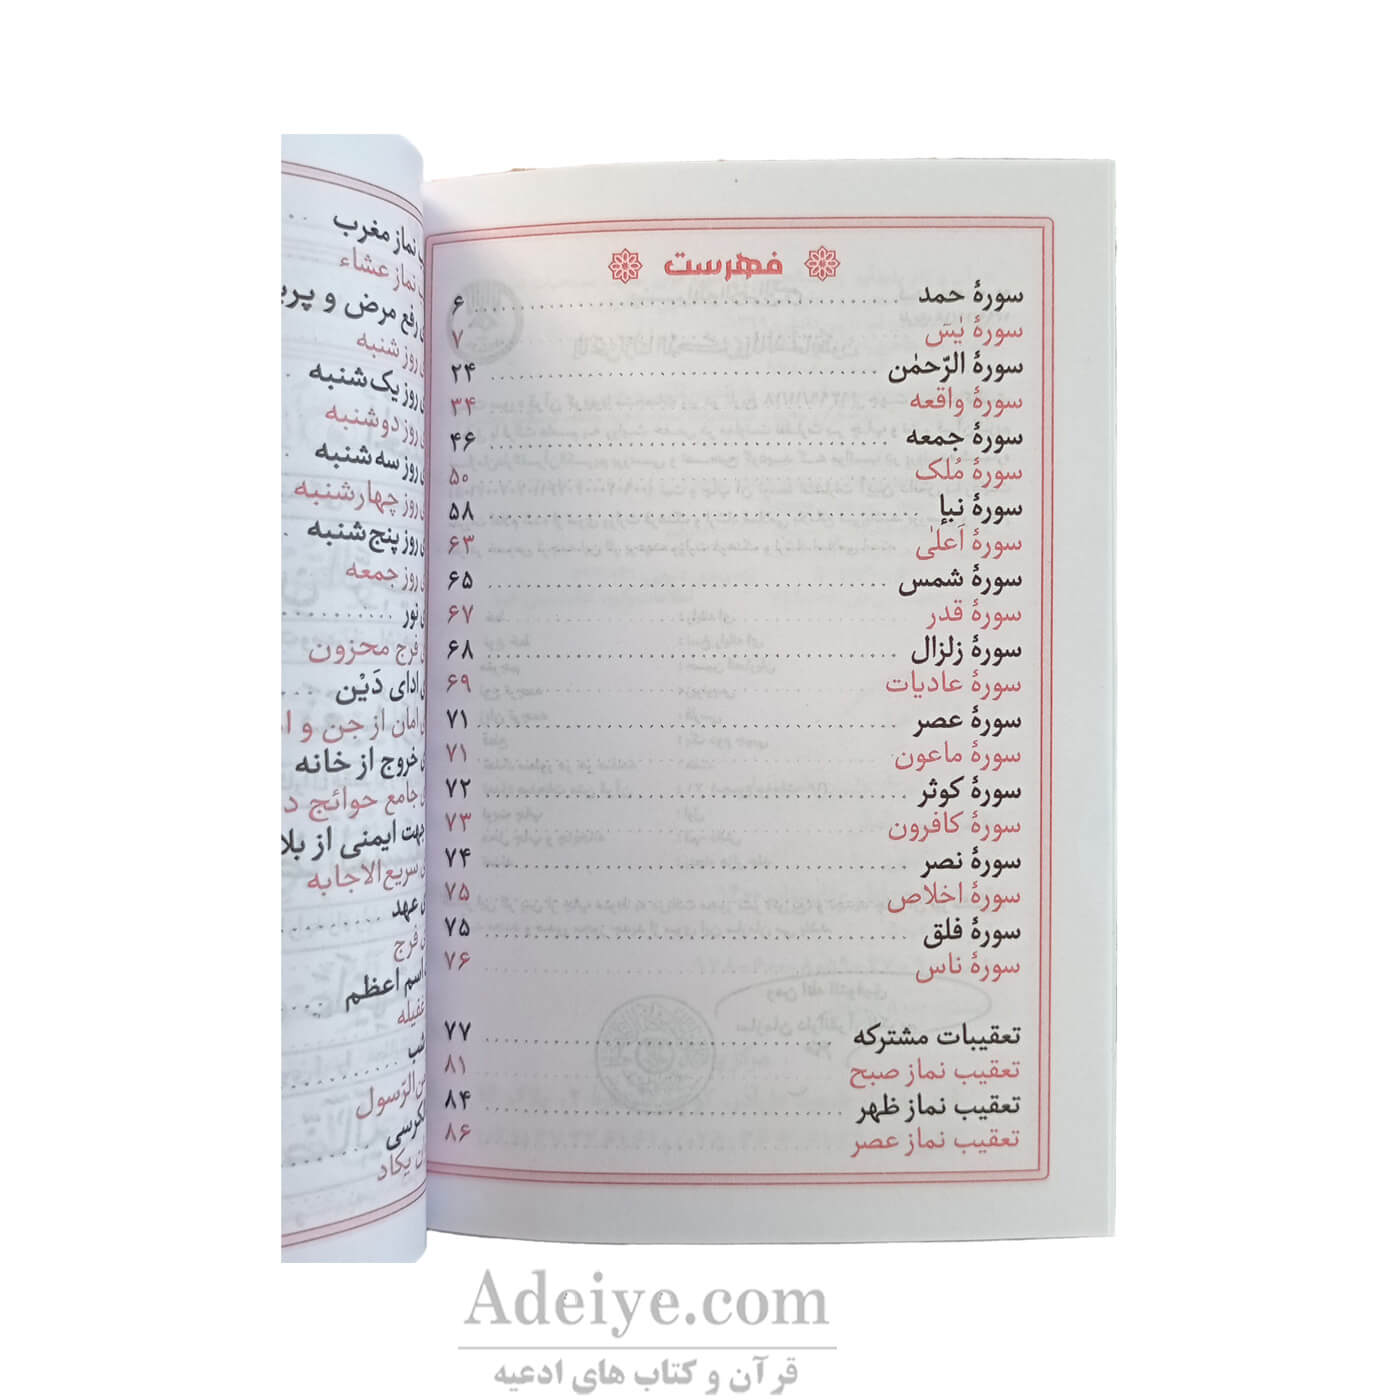 فهرست
سورهٔ حمد ۶
سورهٔ یٰسٓ ۷
سورهٔ الرّحمٰن ۲۴
سورهٔ واقعه ۳۴
سورهٔ جمعه ۴۶
سورهٔ مُلک ۵۰
سورهٔ نبأ ۵۸
سورهٔ اَعلٰی ۶۳
سورهٔ شمس ۶۵
سورهٔ قدر ۶۷
سورهٔ زلزال ۶۸
سورهٔ عادیات ۶۹
سورهٔ عصر ۷۱
سورهٔ ماعون ۷۱
سورهٔ کوثر ۷۲
سورهٔ کافرون ۷۳
سورهٔ نصر ۷۴
سورهٔ اخلاص ۷۵
سورهٔ فلق ۷۵
سورهٔ ناس ۷۶
تعقیبات مشترکه ۷۷
تعقیب نماز صبح ۸۱
تعقیب نماز ظهر ۸۴
تعقیب نماز عصر ۸۶
نماز مغرب
نماز عشاء
رفع مرض و
روز شنبه
روز یک‌شنبه
روز دوشنبه
روز سه‌شنبه
روز چهارشنبه
روز پنج‌شنبه
روز جمعه
نور
فرج محزون
ادای دَیْن
امان از جن و
خروج از خانه
جامع حوائج
جهت ایمنی از
سریع‌الاجابه
عهد
فرج
اسم اعظم
غفیله
شب
الرّسول
یکاد
Adeiye.com
قرآن و کتاب های ادعیه